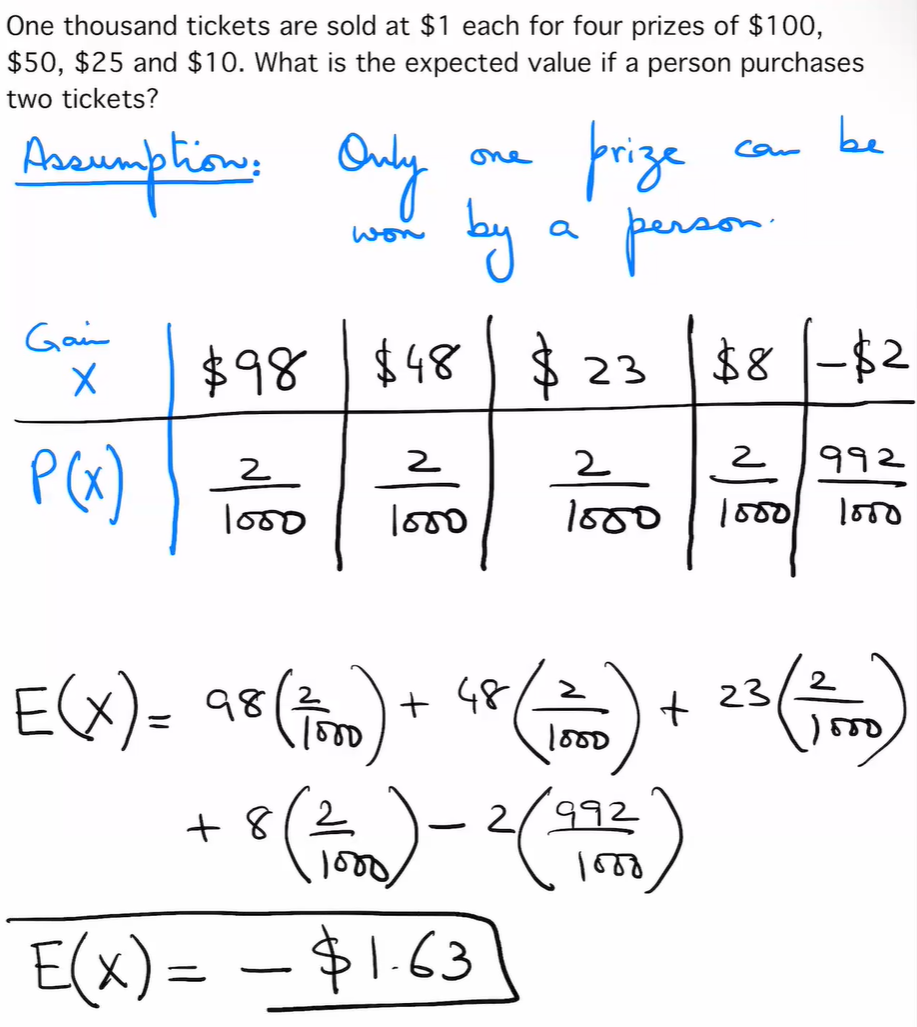 One thousand tickets are sold at $1 each for four prizes of $100,
$50, $25 and $10. What is the expected value if a person purchases
two tickets?
Assumption: Only one prize can be
won by a person.
Gain X | $98 | $48 | $23 | $8 | -$2
P(X) | 2/1000 | 2/1000 | 2/1000 | 2/1000 | 992/1000
E(X) = 98(2/1000) + 48(2/1000) + 23(2/1000)
+ 8(2/1000) - 2(992/1000)
E(X) = - $1.63